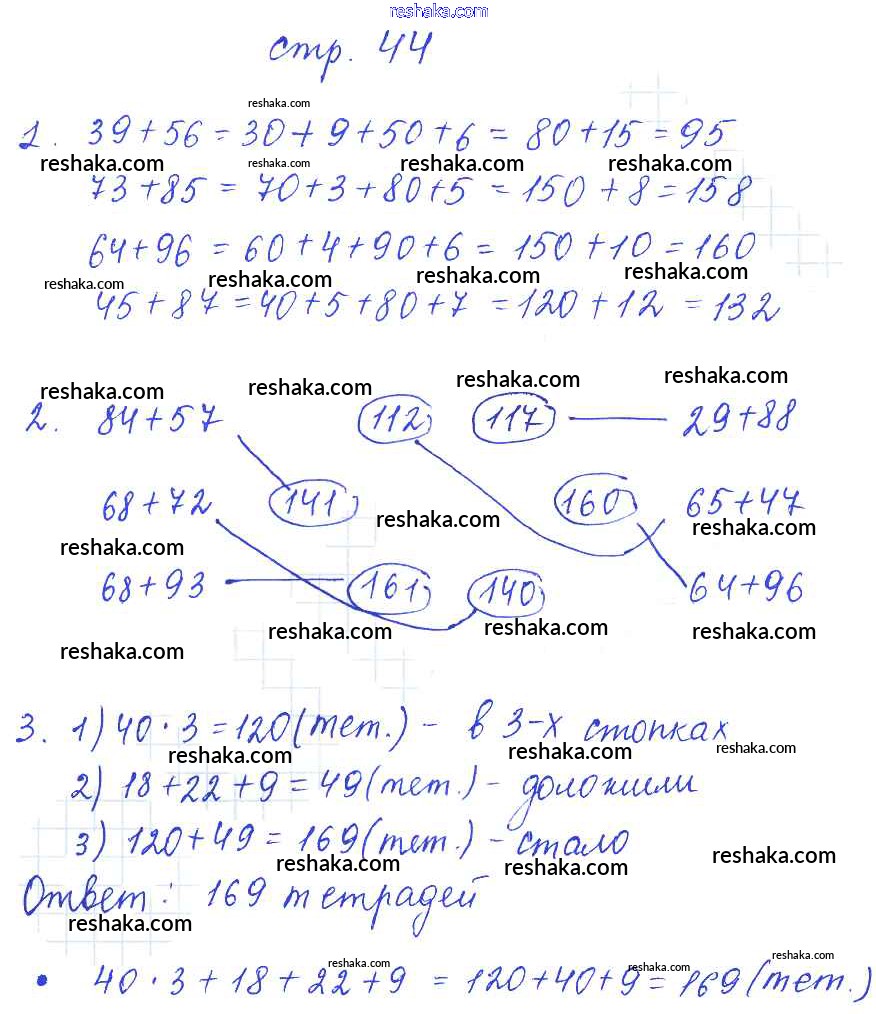 reshaka.com
стр. 44
reshaka.com
1. 39+56 = 30+9+50+6 = 80+15 = 95
reshaka.com reshaka.com reshaka.com reshaka.com
73+85 = 70+3+80+5 = 150+8 = 158
64+96 = 60+4+90+6 = 150+10 = 160
reshaka.com reshaka.com reshaka.com reshaka.com
45+87 = 40+5+80+7 = 120+12 = 132
reshaka.com reshaka.com reshaka.com reshaka.com
2. 84+57 112 117 29+88
68+72 141 160 65+47
reshaka.com reshaka.com reshaka.com
68+93 161 140 64+96
reshaka.com reshaka.com reshaka.com reshaka.com
3. 1) 40·3=120(тет.) - в 3-х стопках
reshaka.com reshaka.com reshaka.com
2) 18+22+9=49(тет.) - доложили
3) 120+49=169(тет.) - стало
reshaka.com reshaka.com reshaka.com
Ответ: 169 тетрадей
reshaka.com
reshaka.com reshaka.com reshaka.com
• 40·3+18+22+9 = 120+40+9=169(тет.)